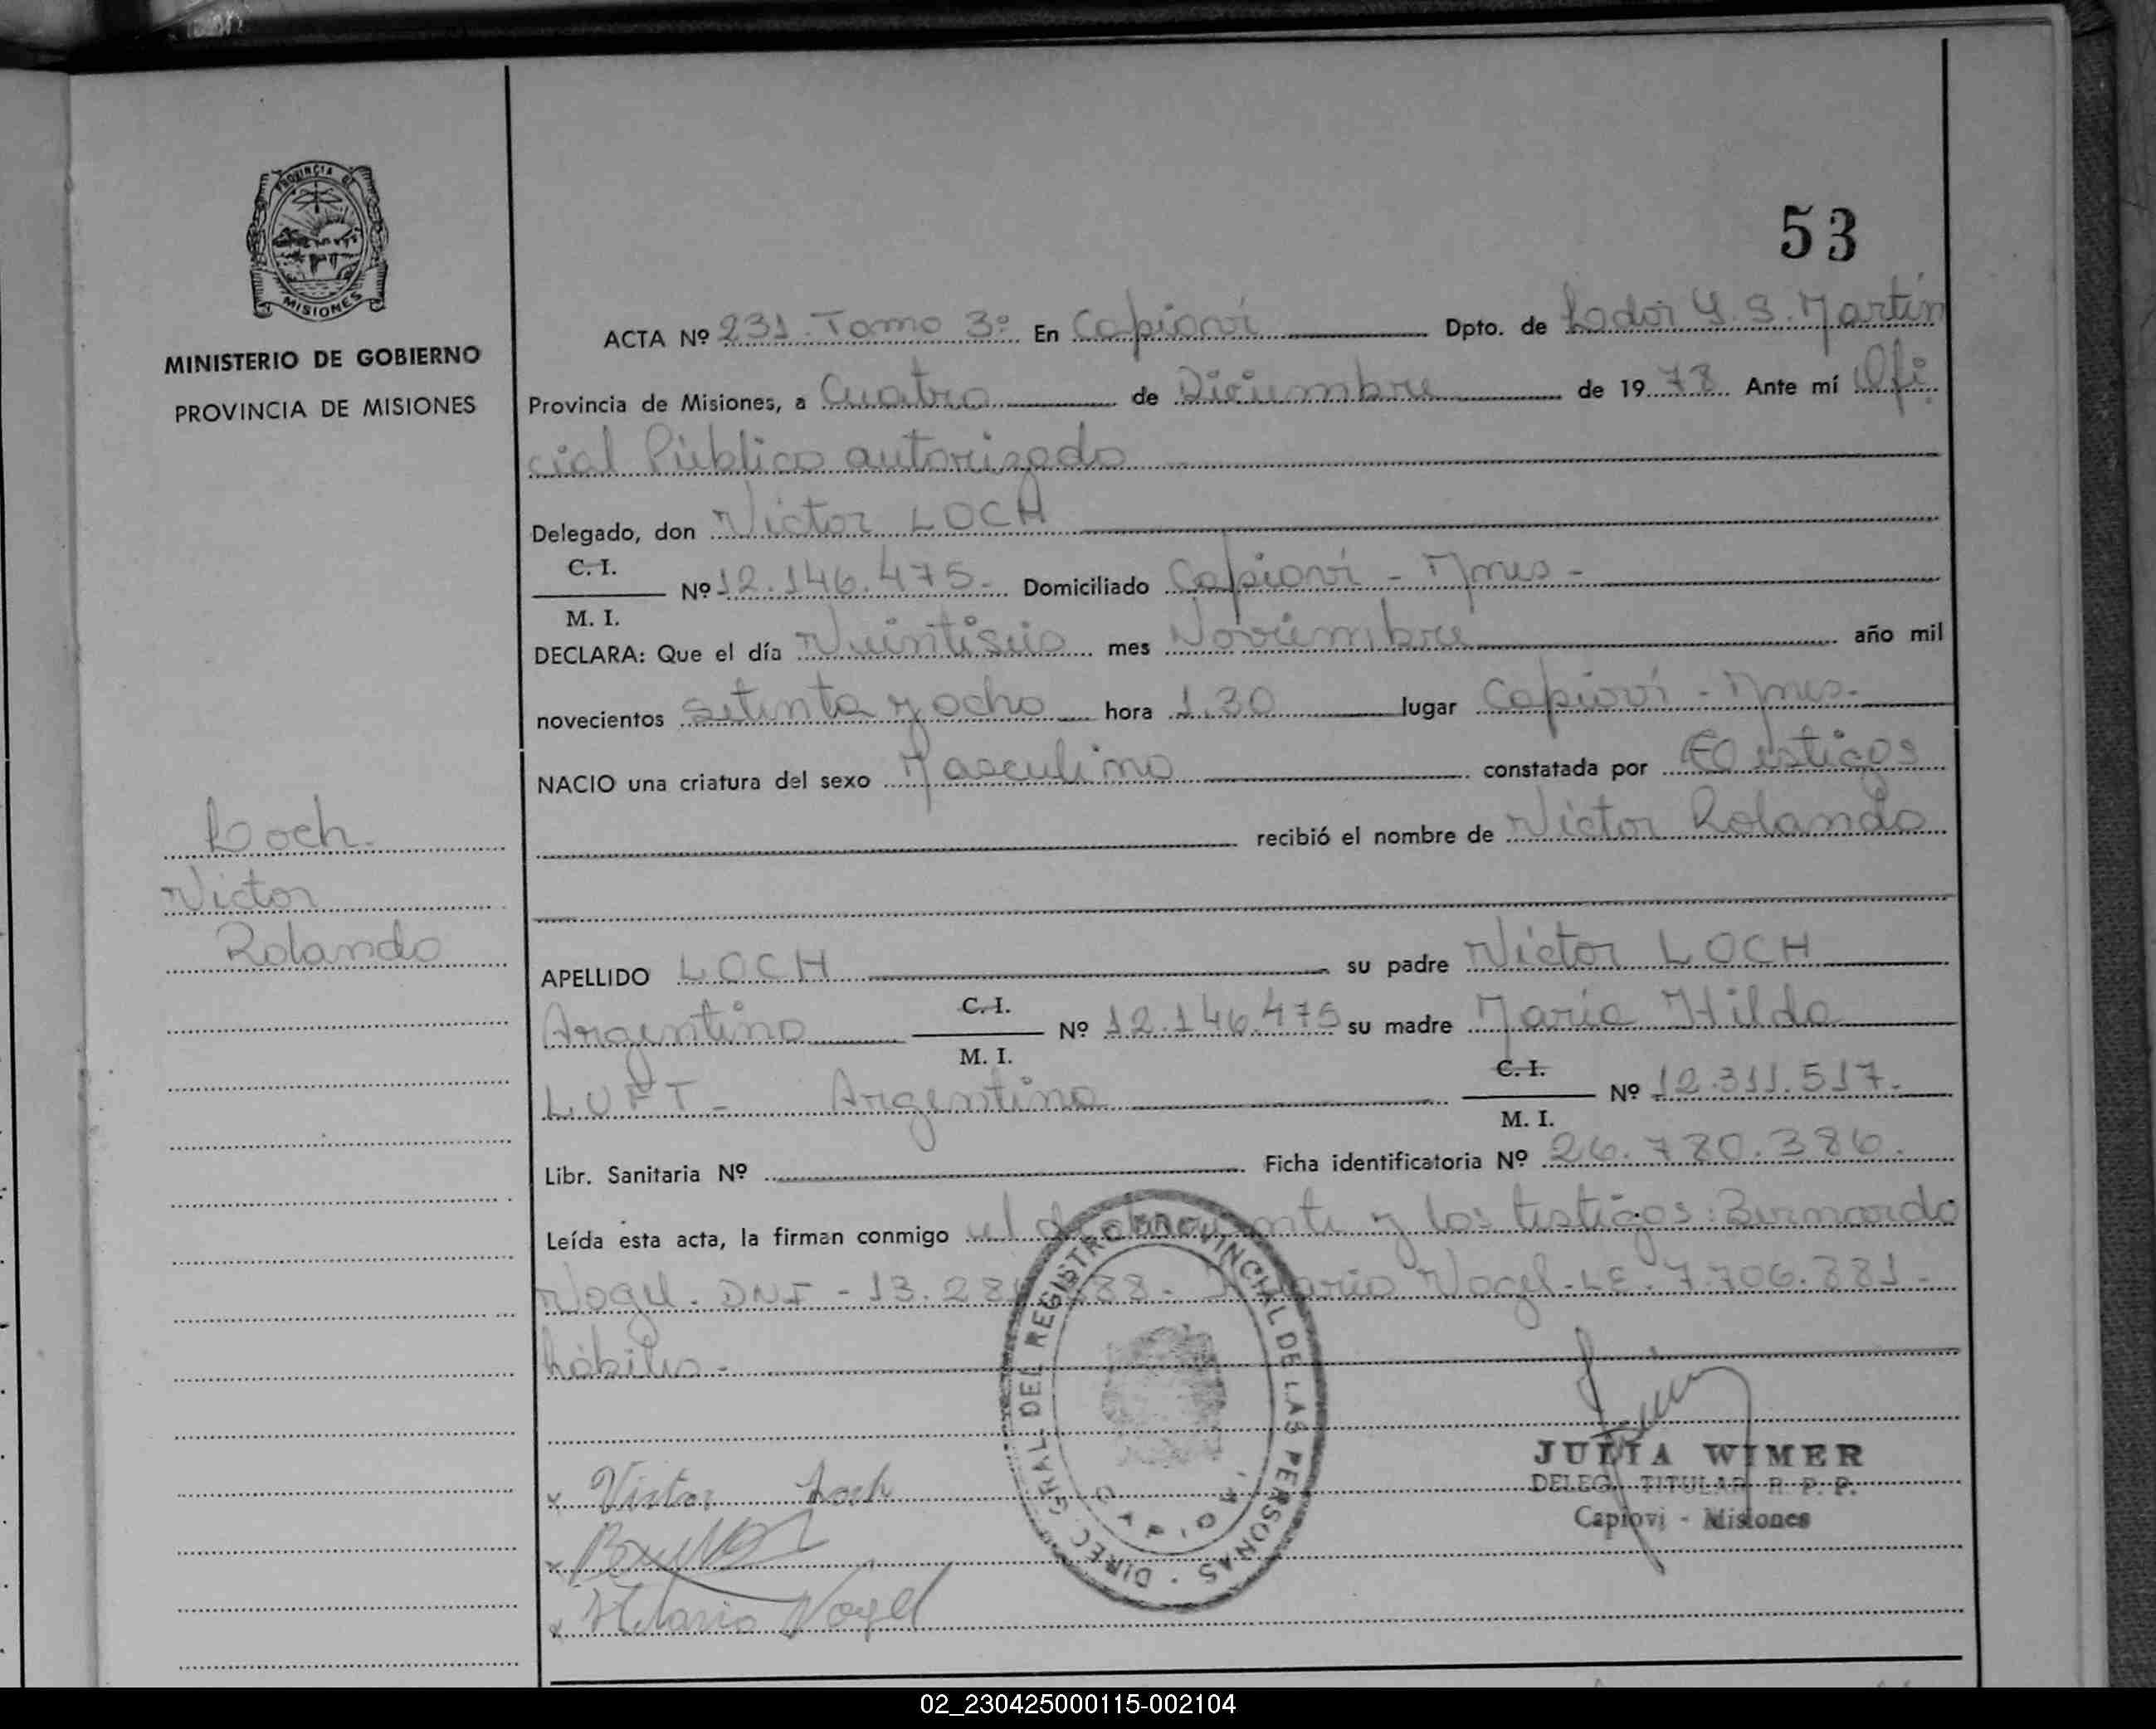 53
PROVINCIA DE
MISIONES
MINISTERIO DE GOBIERNO
PROVINCIA DE MISIONES
Loch
Victor
Rolando
ACTA Nº 231 Tomo 3º En Capioví Dpto. de Ldor G. S. Martín
Provincia de Misiones, a Cuatro de Diciembre de 1978 Ante mí Ofi
cial Público autorizado
Delegado, don Victor LOCH
C. I.
Nº 12.146.475- Domiciliado Capioví - Mnes -
M. I.
DECLARA: Que el día Veintiseis mes Noviembre año mil
novecientos setenta y ocho hora 1.30 lugar Capioví - Mnes-
NACIO una criatura del sexo Masculino constatada por testigos
recibió el nombre de Victor Rolando
APELLIDO LOCH su padre Victor LOCH
Argentino C. I. Nº 12.146.475 su madre María Hilda
M. I.
LUFT - Argentina C. I. Nº 12.311.517.
M. I.
Libr. Sanitaria Nº Ficha identificatoria Nº 26.780.386.
Leída esta acta, la firman conmigo el y los testigos: Bernardo
Vogel. DNI - 13. Vogel - LE. 7.706.881 -
hábiles -
DIREC. GRAL. DEL REGISTRO PROVINCIAL DE LAS PERSONAS
CAPIOVI
Victor Loch
Hilario Vogel
JULIA WIMER
DELEG. TITULAR R. P. P.
Capiovi - Misiones
02_230425000115-002104